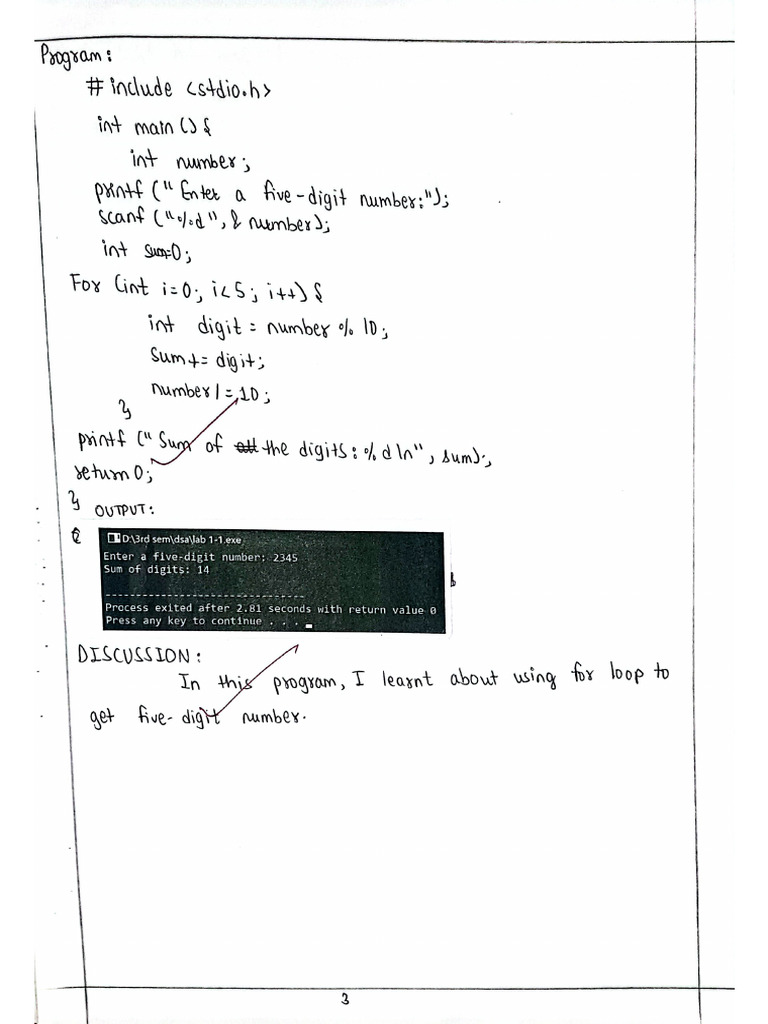 Program:
# include <stdio.h>
int main () {
int number;
printf ("Enter a five-digit number:");
scanf ("%d", & number);
int sum=0;
For (int i=0; i<5; i++) {
int digit = number % 10;
Sum += digit;
number /= 10;
}
printf ("Sum of the digits: % d \n", sum);
return 0;
}
OUTPUT:
D:\3rd sem\dsa\lab 1-1.exe
Enter a five-digit number: 2345
Sum of digits: 14
--------------------------------
Process exited after 2.81 seconds with return value 0
Press any key to continue . . .
DISCUSSION:
In this program, I learnt about using for loop to
get five-digit number.
3